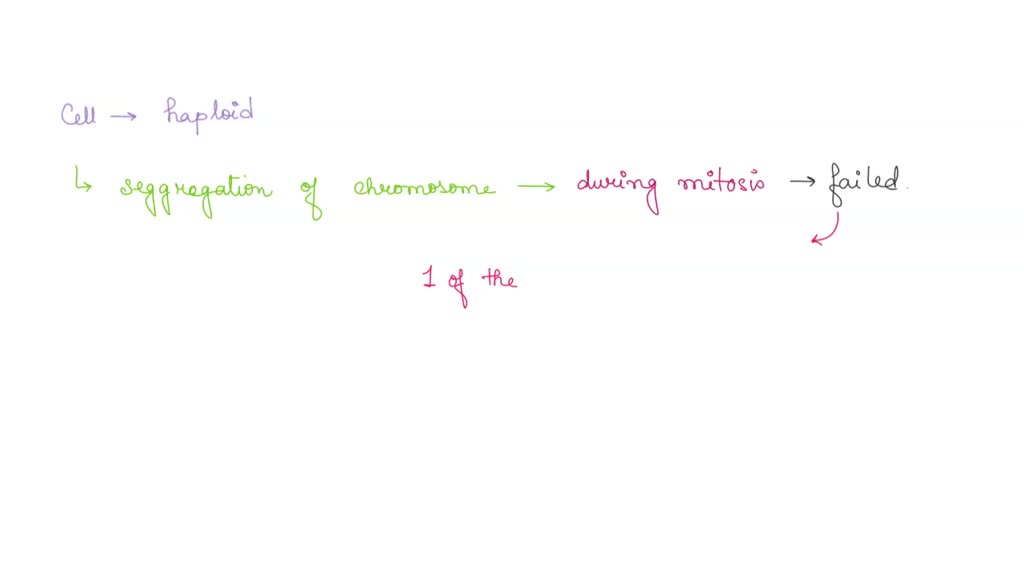 Cell → haploid
↳ seggregation of chromosome → during mitosis → failed.
1 of the